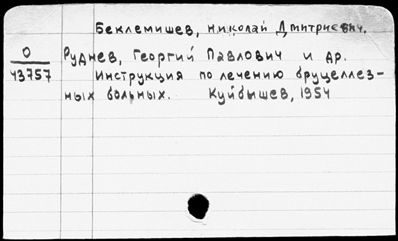 Беклемишев, Николай Дмитриевич.
О
43757
Руднев, Георгий Павлович и др.
Инструкция по лечению бруцеллез-
ных больных. Куйбышев, 1954